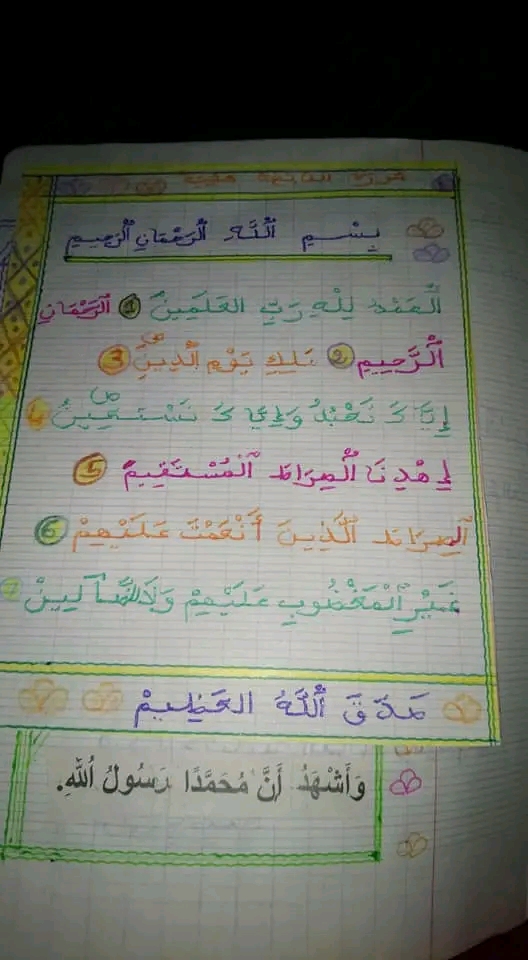 سورة الفاتحة مكية
بِسْمِ اَللَّهِ اِلرَّحْمَانِ اِلرَّحِيمِ
اَلْحَمْدُ لِلهِ رَبِّ الْعَلَمِينَ 1 اَلرَّحْمَانِ
اِلرَّحِيمِ 2 مَلِكِ يَوْمِ اِلدِّينِ 3
إِيَّاكَ نَعْبُدُ وَإِيَّاكَ نَسْتَعِينُ 4
اِهْدِنَا اَلصِّرَاطَ اَلْمُسْتَقِيمَ 5
اَلصِرَاطَ اَلَّذِينَ أَنْعَمْتَ عَلَيْهِمْ 6
غَيْرِ اِلْمَغْضُوبِ عَلَيْهِمْ وَلَا اَلضَّآلِينْ 7
صَدَقَ اَللَّهُ العَظِيمْ
وَأَشْهَدُ أَنَّ مُحَمَّدًا رَسُولُ اُللهِ.